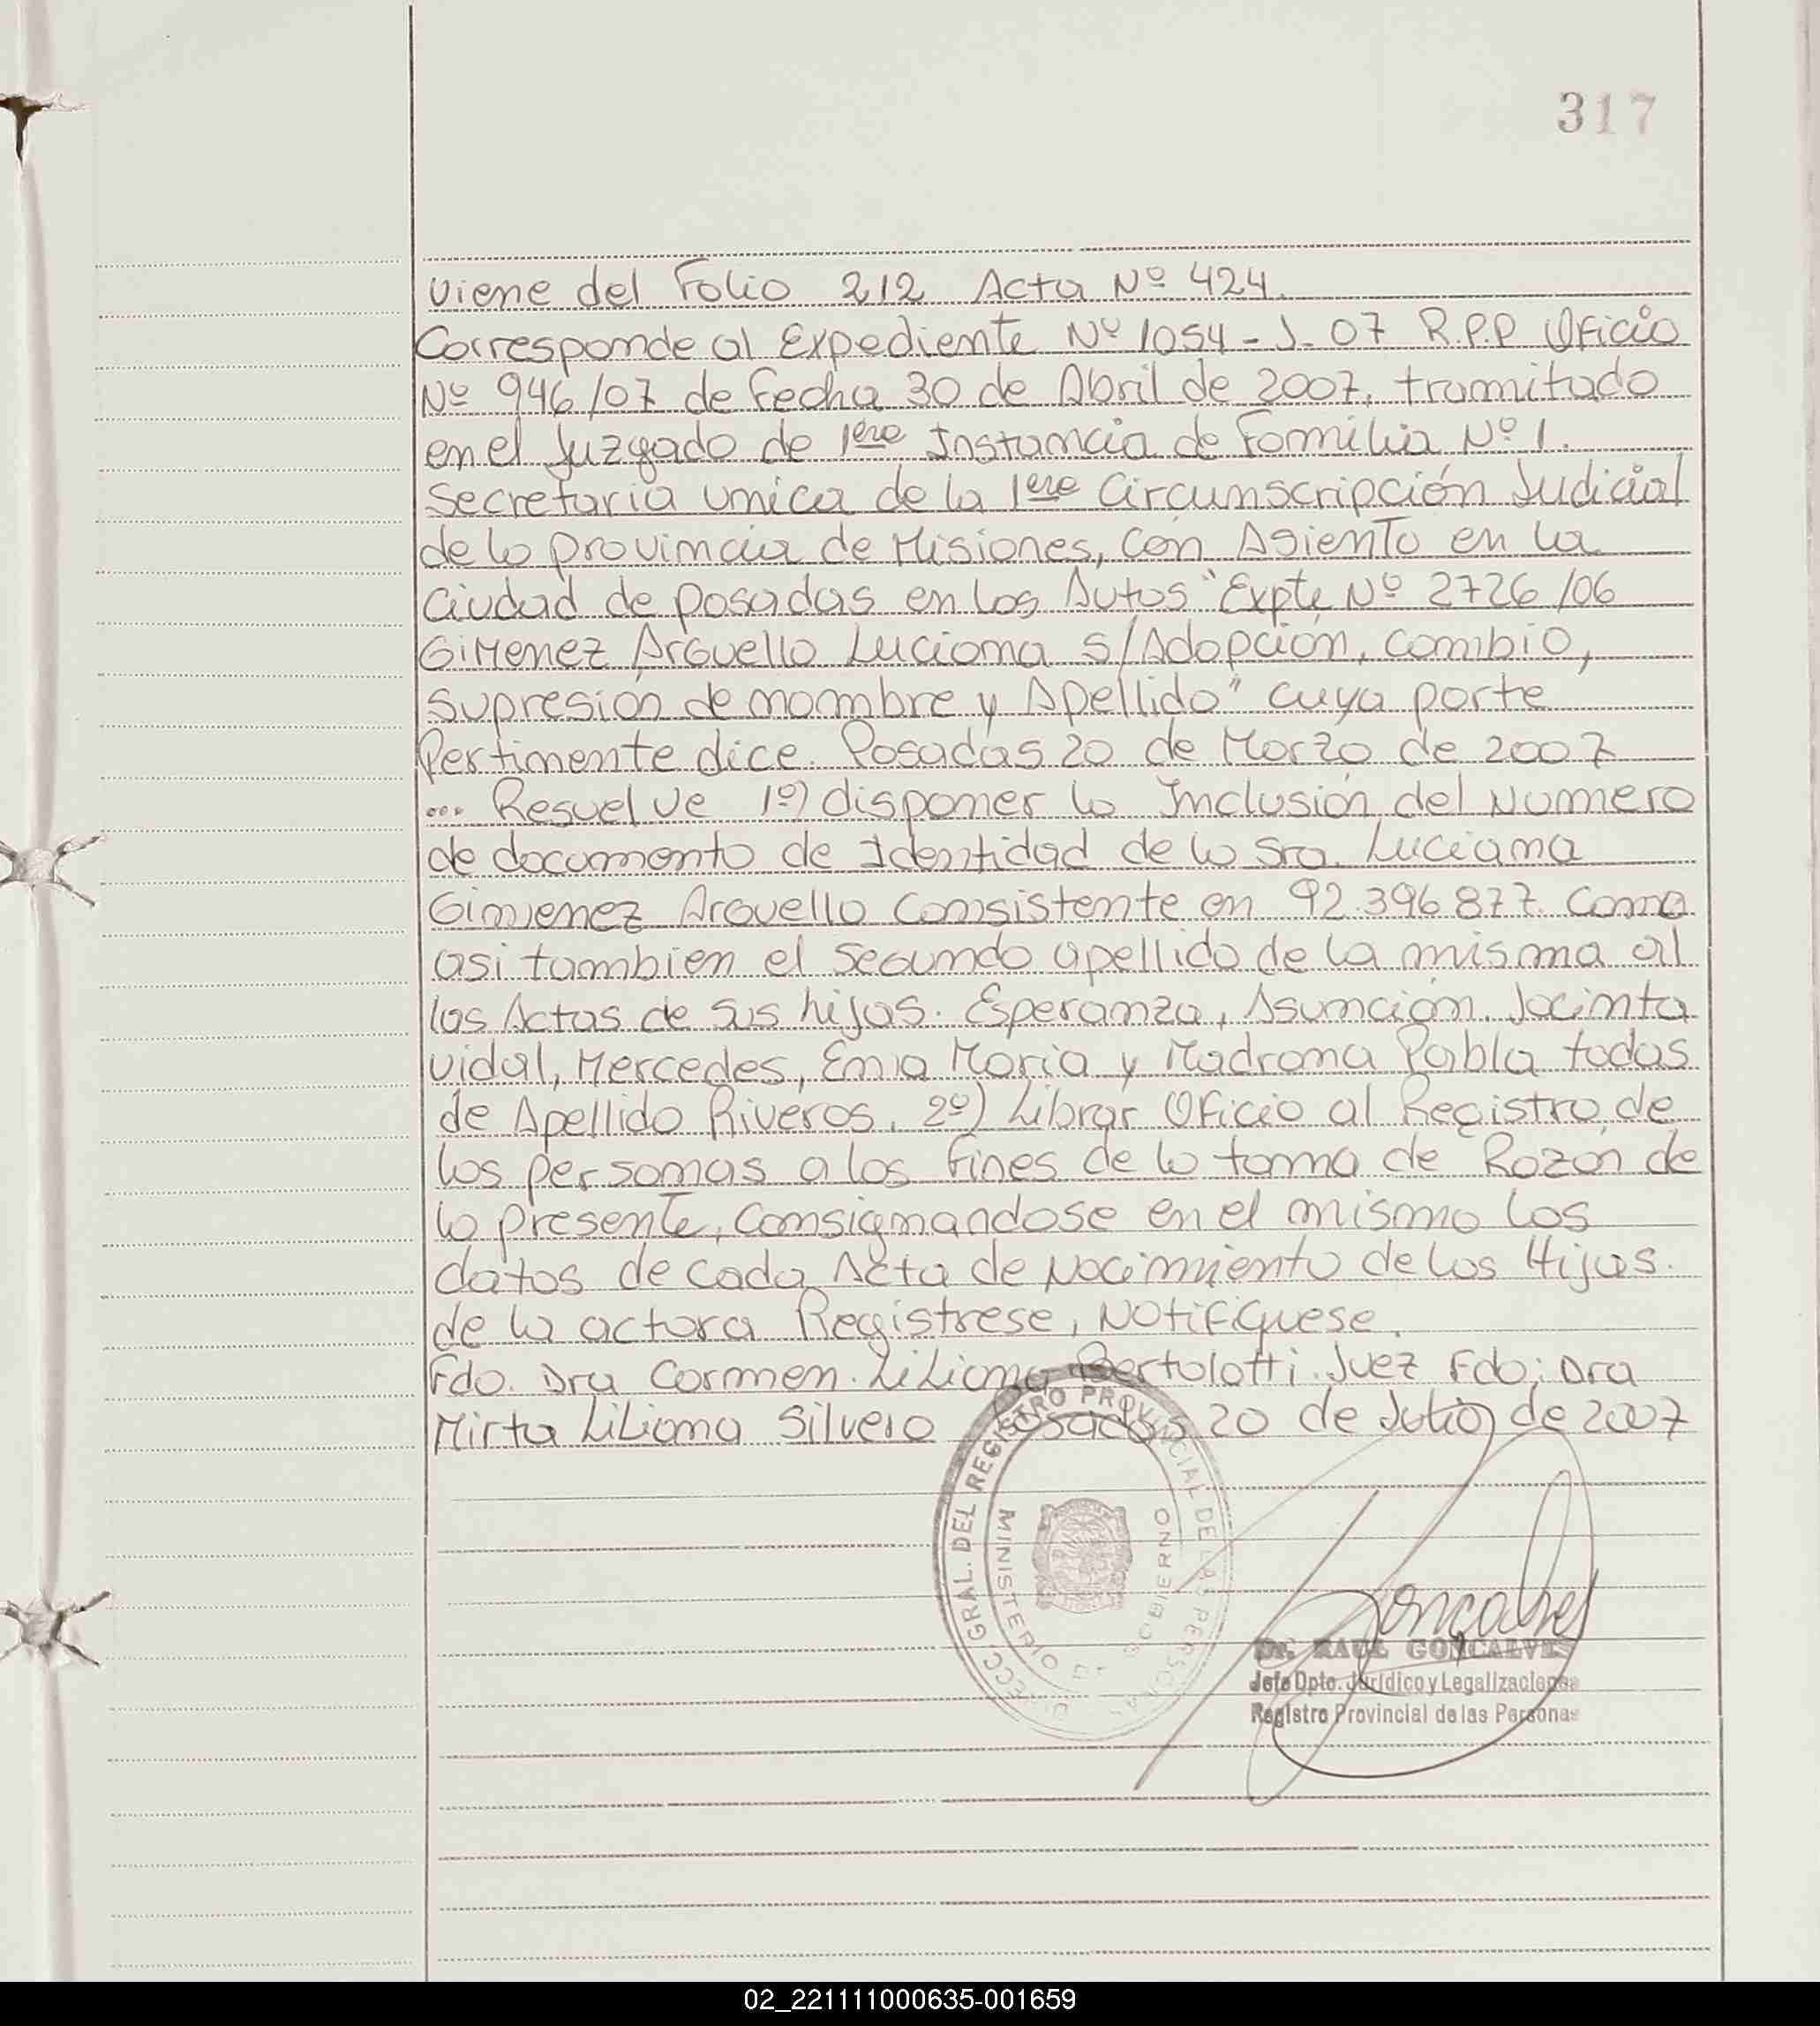 317
Viene del Folio 212 Acta Nº 424.
Corresponde al Expediente Nº 1054-J-07 R.P.P Oficio
Nº 946/07 de Fecha 30 de Abril de 2007, tramitado
en el Juzgado de 1era Instancia de Familia Nº 1.
Secretaria unica de la 1era Circunscripción Judicial
de la provincia de Misiones, con Asiento en la
Ciudad de Posadas en los Autos "Expte Nº 2726/06
Gimenez Arguello Luciana s/Adopción, cambio,
supresión de nombre y Apellido" cuya parte
Pertinente dice. Posadas 20 de Marzo de 2007
... Resuelve 1º) disponer la Inclusión del Numero
de documento de Identidad de la Sra. Luciana
Gimenez Arguello Consistente en 92.396.877. Como
asi tambien el segundo apellido de la misma al
las Actas de sus hijas. Esperanza, Asunción, Jacinta
Vidal, Mercedes, Ema Maria y Madrona Pabla todas
de Apellido Riveros. 2º) Librar Oficio al Registro de
las personas a los fines de la toma de Razón de
la presente, Consignandose en el mismo los
datos de cada Acta de Nacimiento de las Hijas.
de la actora Registrese, Notifiquese.
Fdo. Dra Carmen. Liliana Bertolotti. Juez Fdo: Dra
Mirta Liliana Silvero Posadas 20 de Julio de 2007
DIRECC. GRAL. DEL REGISTRO PROVINCIAL DE LAS PERSONAS
MINISTERIO D GOBIERNO
Goncalves
Dr. RAUL GONCALVES
Jefe Dpto. Jurídico y Legalizaciones
Registro Provincial de las Personas
02_221111000635-001659